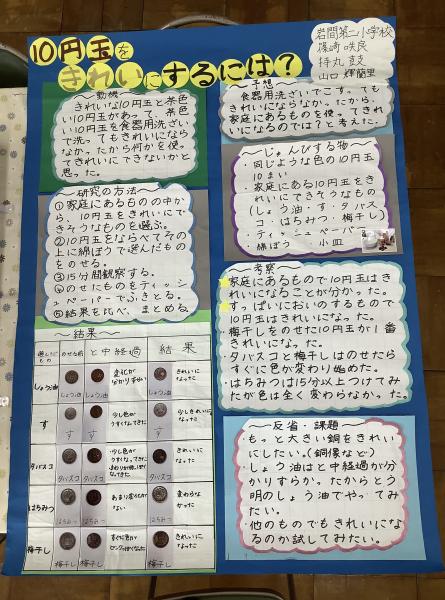 10円玉を
きれいにするには?
岩間第二小学校
篠﨑 咲良
持丸 鼓
山口 輝蘭里
動機
きれいな10円玉と茶色
い10円玉があって、茶色
い10円玉を食器用洗ざい
で洗ってもきれいになら
なかったから何かを使っ
てきれいにできないかと
思った。
予想
食器用洗ざいでこすっても
きれいにならなかったから、
家庭にあるものを使ってきれ
いになるのでは?と考えた。
研究の方法
①家庭にあるものの中か
ら、10円玉をきれいにで
きそうなものを選ぶ。
②10円玉をならべてその
上に綿ぼうで選んだもの
をのせる。
③15分間観察する。
④のせたものをティッシ
ュペーパーでふきとる。
⑤結果を比べ、まとめる。
じゅんびする物
・同じような色の10円玉
10まい
・家庭にある10円玉をき
れいにできそうなもの
(しょう油・す・タバス
コ・はちみつ・梅干し)
・ティッシュペーパー
・綿ぼう ・小皿
考察
家庭にあるもので10円玉はき
れいになることが分かった。
すっぱいにおいのするもので
10円玉はきれいになった。
・梅干しをのせた10円玉が1番
きれいになった。
・タバスコと梅干しはのせたら
すぐに色が変わり始めた。
・はちみつは15分以上つけてみ
たが色は全く変わらなかった。
結果
選んだもの のせる前 と中経過 結果
しょう油 しょう油 しょう油 変化が分かりずらい きれいになった
す す す 少し色がうすくなってきた 少しきれいになった
タバスコ タバスコ タバスコ きれいになった
はちみつ はちみつ はちみつ あまり変化がない 変わらなかった
梅干し 梅干し 梅干し きれいになった
反省・課題
もっと大きい銅をきれい
にしたい。(銅像など)
・しょう油はと中経過が分
かりずらかったからとう
明のしょう油でやってみ
たい。
・他のものでもきれいにな
るのか試してみたい。